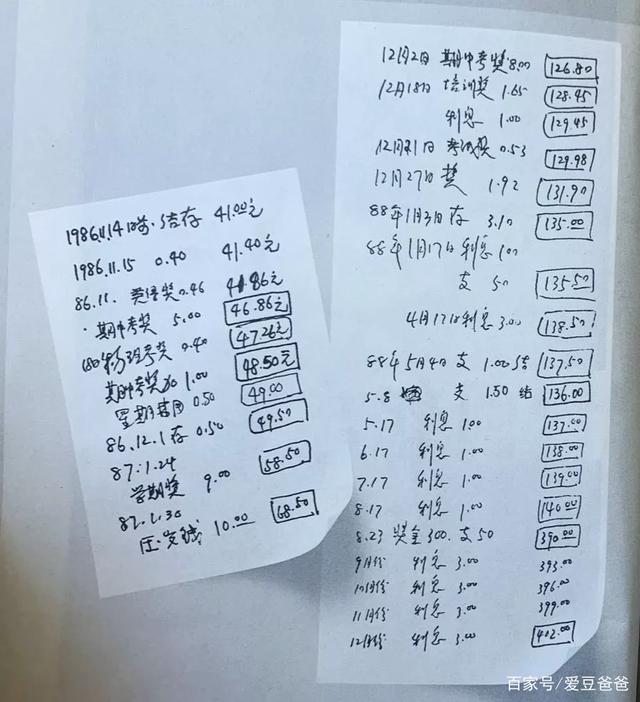 1986.11.14日前·结存 41.00元
1986.11.15 0.40 41.40元
86.11. 英语奖0.46 41.86元
·期中考奖 5.00 46.86元
物理考奖 0.40 47.26元
期中考奖加 1.00 48.50元
星期 0.50 49.00
86.12.1存 0.50 49.50
87.1.24
学期奖 9.00 58.50
87.1.30
压岁钱 10.00 68.50
12月2日 期中考奖 8.00 126.80
12月18日 培训奖 1.65 128.45
利息 1.00 129.45
12月21日 考试奖 0.53 129.98
12月27日 奖 1.92 131.90
88年1月3日存 3.10 135.00
88年1月17日利息 1.00
支 50 135.50
4月17日利息 3.00 138.50
88年5月4日支 1.00 结 137.50
5.8 支 1.50 结 136.00
5.17 利息 1.00 137.00
6.17 利息 1.00 138.00
7.17 利息 1.00 139.00
8.17 利息 1.00 140.00
8.23 奖金300. 支50 390.00
9月份 利息 3.00 393.00
10月份 利息 3.00 396.00
11月份 利息 3.00 399.00
12月份 利息 3.00 402.00
百家号/爱豆爸爸